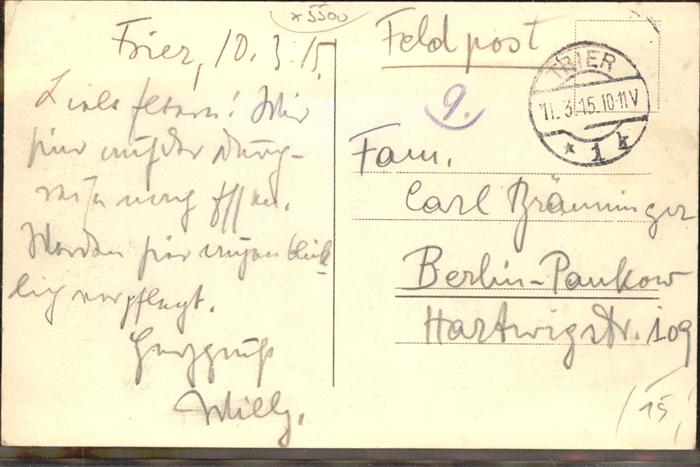 x 5500
Trier, 10.3.15.
Liebe Eltern! Wir
sind auf der Durch-
reise nach Essen.
Werden hier augenblick-
lich verpflegt.
Herzgruß
Willy.
Feldpost
TRIER
11.3.15.10-11V
* 1 k
9.
Fam.
Carl Bräuninger
Berlin-Pankow
Hartwigstr. 109
(15,